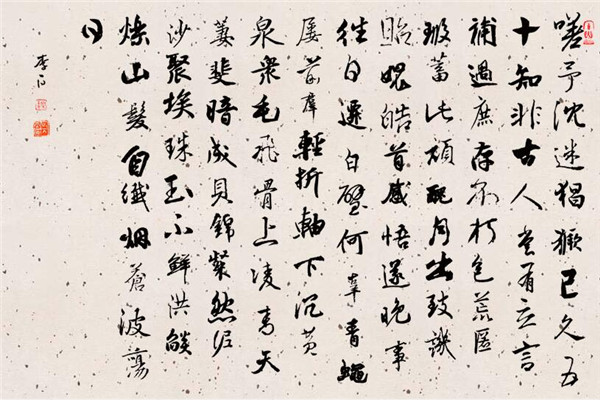 嗟予沈迷猖獗已久五
十知非古人尝有立言
補過庶存不朽包荒匿
瑕蓄此頑醜月出致譏
貽媿皓首感悟遂晚事
往日遷白璧何辜青蠅
屢前羣輕折軸下沉黄
泉衆毛飛骨上凌青天
萋斐暗成貝錦粲然泥
沙聚埃珠玉不鮮洪燄
爍山髮自纖烟蒼波蕩
日
李白